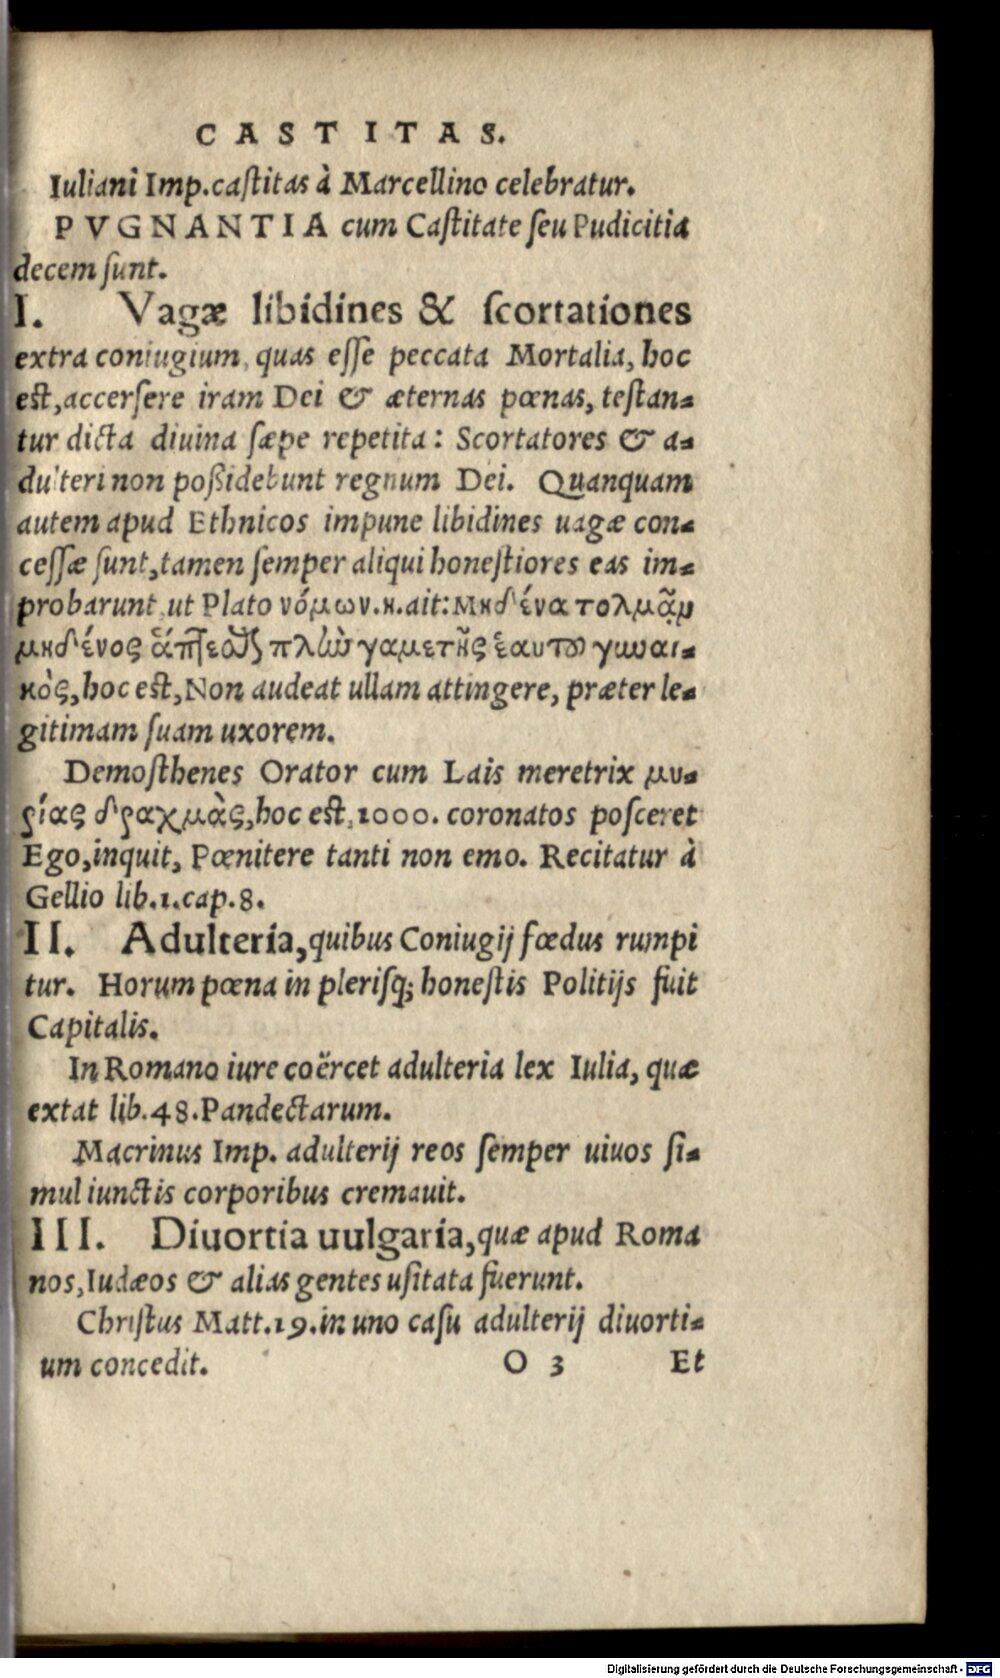 CASTITAS.
Iuliani Imp. castitas à Marcellino celebratur.
PVGNANTIA cum Castitate seu Pudicitia
decem sunt.
I. Vagæ libidines & scortationes
extra coniugium, quas esse peccata Mortalia, hoc
est, accersere iram Dei & æternas pœnas, testan-
tur dicta diuina sæpe repetita: Scortatores & a-
dulteri non poßidebunt regnum Dei. Quanquam
autem apud Ethnicos impune libidines uagæ con-
cessæ sunt, tamen semper aliqui honestiores eas im-
probarunt, ut Plato νόμων.η. ait: Μηδένα τολμᾶν
μηδένος ἅπτεσθαι πλὴν γαμετῆς ἑαυτοῦ γυναι-
κὸς, hoc est, Non audeat ullam attingere, præter le-
gitimam suam uxorem.
Demosthenes Orator cum Lais meretrix μυ-
ρίας δραχμὰς, hoc est, 1000. coronatos posceret
Ego, inquit, Pœnitere tanti non emo. Recitatur à
Gellio lib.1.cap.8.
II. Adulteria, quibus Coniugij fœdus rumpi
tur. Horum pœna in plerisq; honestis Politijs fuit
Capitalis.
In Romano iure coërcet adulteria lex Iulia, quæ
extat lib.48.Pandectarum.
Macrinus Imp. adulterij reos semper uiuos si-
mul iunctis corporibus cremauit.
III. Diuortia uulgaria, quæ apud Roma
nos, Iudæos & alias gentes usitata fuerunt.
Christus Matt.19. in uno casu adulterij diuorti-
um concedit. O 3 Et
Digitalisierung gefördert durch die Deutsche Forschungsgemeinschaft - DFG